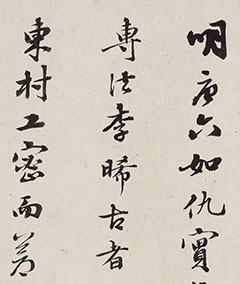 明唐六如仇實
專法李晞古者
東村工密而差